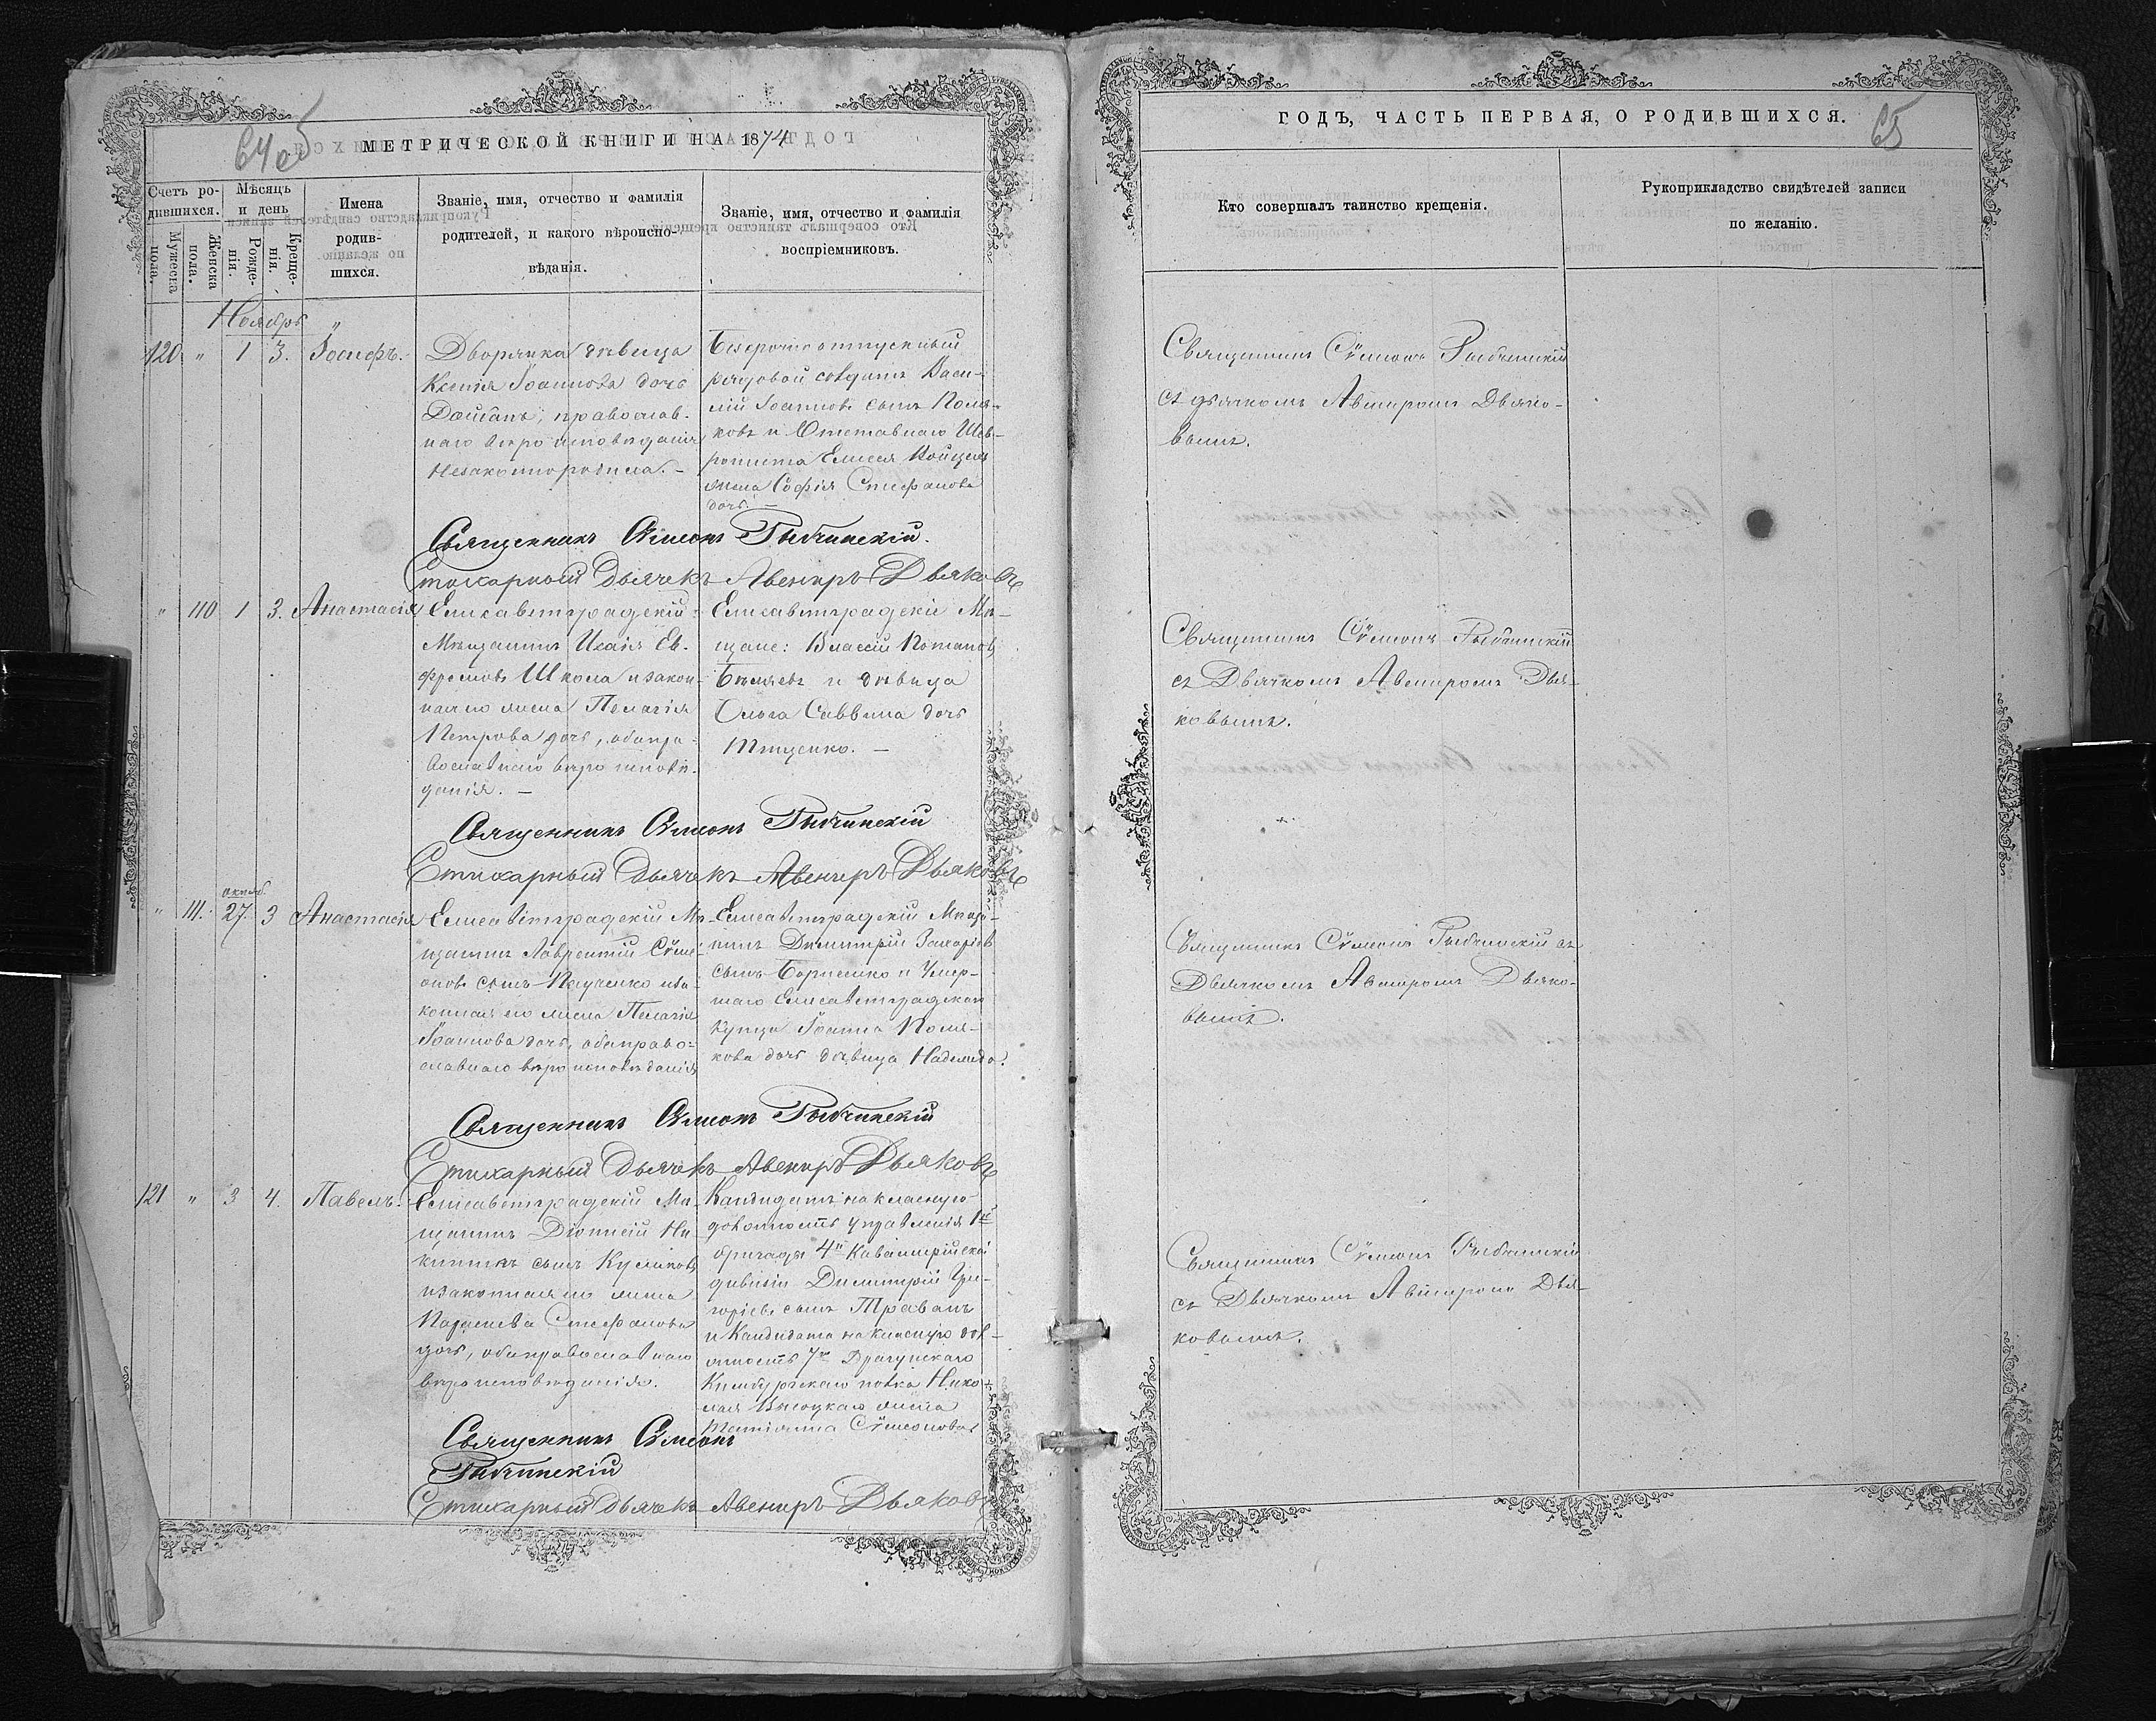 64 об
МЕТРИЧЕСКОЙ КНИГИ НА 1874
Счетъ ро-
дившихся.
Мужеска
пола.
Женска
пола.
Мѣсяцъ
и день
Рожде-
нія.
Креще-
нія.
Имена
родив-
шихся.
Званіе, имя, отчество и фамилія
родителей, и какого вѣроиспо-
вѣданія.
Званіе, имя, отчество и фамилія
воспріемниковъ.
Ноябрь
120 " 1 3. Іосифъ.
Дворянка дѣвица
Ксенія Іоаннова дочь
православ-
наго вѣроисповѣданія
Незаконнорожд. –
Безсрочноотпускный
рядовой солдатъ Васи-
лій Іоанновъ сынъ Поля-
ковъ и Отставного
Елисея
жена Софія Стефанова
дочь. –
Священникъ Сѵмеонъ Рыбчинскій.
Стихарный Дьячекъ Авениръ Дьяковъ
" 110 1 3. Анастасія
Елисаветградскій
Мѣщанинъ Исаія Ев-
фремовъ Школа и закон-
ная его жена Пелагія
Петрова дочь, оба пра-
вославнаго вѣроисповѣ-
данія. –
Елисаветградскіе Мѣ-
щане: Власій Потаповъ
Бѣляевъ и дѣвица
Ольга Саввина дочь
Тищенко. –
Священникъ Сѵмеонъ Рыбчинскій
Стихарный Дьячекъ Авениръ Дьяковъ
октяб.
" 111. 27. 3 Анастасія
Елисаветградскій Мѣ-
щанинъ Лаврентій Сѵме-
оновъ сынъ и за-
конная его жена Пелагія
Іоаннова дочь, оба право-
славнаго вѣроисповѣданія
Елисаветградскій Мѣща-
нинъ Димитрій Захаріевъ
сынъ Борисенко и Умер-
шаго Елисаветградскаго
купца Іоанна Поля-
кова дочь дѣвица Надежда.
Священникъ Сѵмеонъ Рыбчинскій
Стихарный Дьячекъ Авениръ Дьяковъ
121 " 3 4. Павелъ.
Елисаветградскій Мѣ-
щанинъ Діонисій Ни-
китинъ сынъ Куликовъ
и законная его жена
Параскева Стефанова
дочь, оба православнаго
вѣроисповѣданія.
Кандидатъ на класную
должность управленія 1й
бригады 4й Кавалерійской
дивизіи Димитрій Гри-
горіевъ сынъ Травинъ
и Кандидата на класную дол-
жность 7го Драгунскаго
Кинбурнскаго полка Нико-
лая Высоцкаго жена
Татіанна Сѵмеонова
Священникъ Сѵмеонъ
Рыбчинскій
Стихарный Дьячекъ Авениръ Дьяковъ
ГОДЪ, ЧАСТЬ ПЕРВАЯ, О РОДИВШИХСЯ.
65
Кто совершалъ таинство крещенія.
Рукоприкладство свидѣтелей записи
по желанію.
Священникъ Сѵмеонъ Рыбчинскій
съ дьячкомъ Авениромъ Дьяко-
вымъ.
Священникъ Сѵмеонъ Рыбчинскій
съ Дьячкомъ Авениромъ Дья-
ковымъ.
Священникъ Сѵмеонъ Рыбчинскій съ
Дьячкомъ Авениромъ Дьяко-
вымъ.
Священникъ Сѵмеонъ Рыбчинскій
съ Дьячкомъ Авениромъ Дья-
ковымъ.